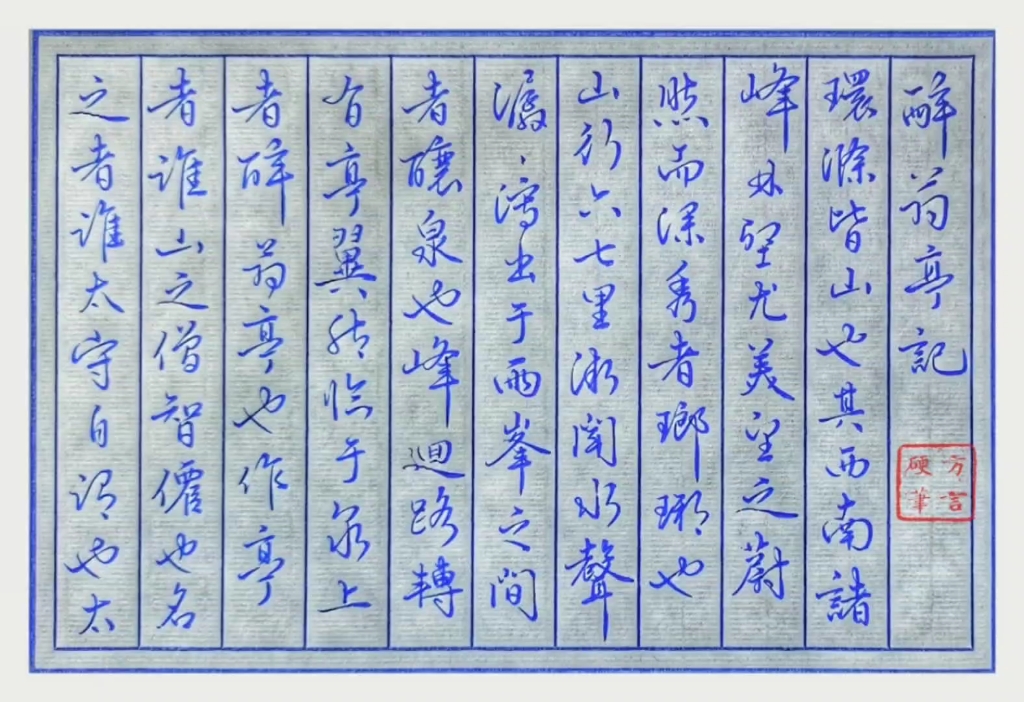 醉翁亭記
方言
硬筆
環滁皆山也其西南諸
峰林壑尤美望之蔚
然而深秀者瑯琊也
山行六七里漸聞水聲
潺、瀉出于兩峯之間
者釀泉也峰迴路轉
有亭翼然臨于泉上
者醉翁亭也作亭
者誰山之僧智僊也名
之者誰太守自謂也太